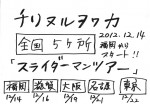 チリヌルヲワカ
全国 5ヶ所
2012.12.14
福岡から
スタート!!
「スライダーマンツアー」
福岡 滋賀 大阪 名古屋 東京
12/14 12/16 12/19 12/21 12/22